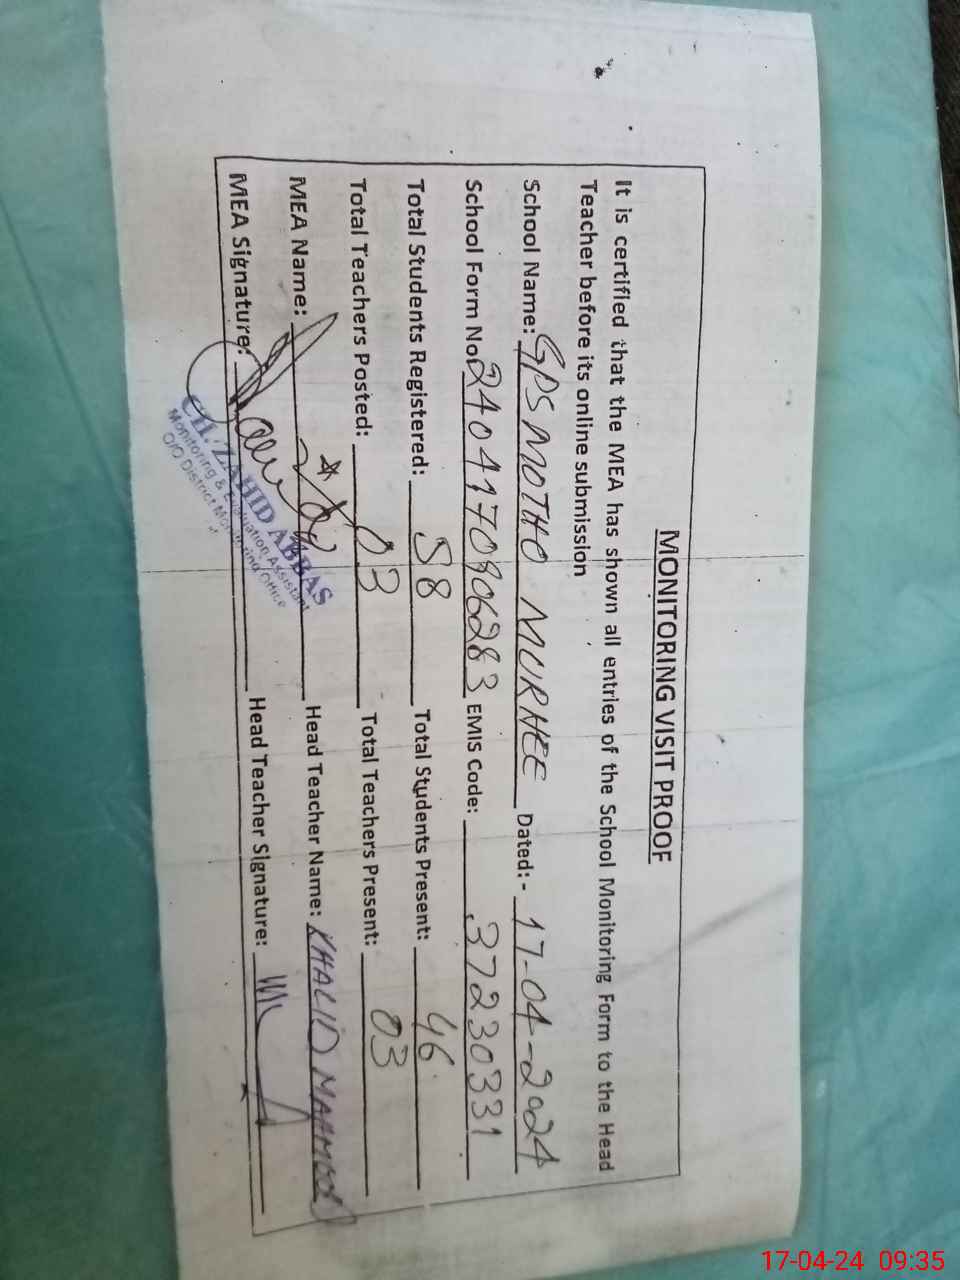 MONITORING VISIT PROOF
It is certified that the MEA has shown all entries of the School Monitoring Form to the Head
Teacher before its online submission
School Name: GPS MOTHO MURNEE Dated:- 17-04-2024
School Form No 24041709906283 EMIS Code: 37230331
Total Students Registered: 58 Total Students Present: 46
Total Teachers Posted: 03 Total Teachers Present: 03
MEA Name: Head Teacher Name: KHALID MAHMOOD
MEA Signature: Head Teacher Signature:
CH. ZAHID ABBAS
Monitoring & Evaluation Assistant
O/O District Monitoring Office
17-04-24 09:35